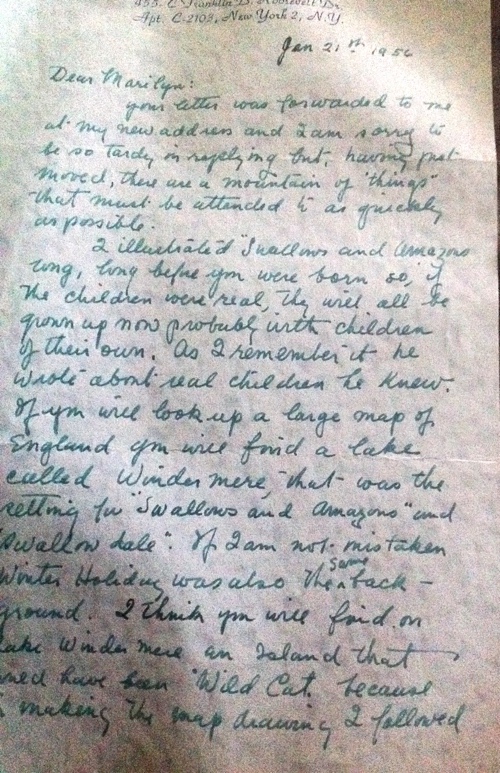 455. C Franklin D. Roosevelt Dr.
Apt. C-2102, New York 2, N.Y.
Jan 21st 1956
Dear Marilyn:
your letter was forwarded to me
at my new address and I am sorry to
be so tardy in replying but, having just
moved, there are a mountain of "things"
that must be attended to as quickly
as possible.
I illustrated "Swallows and Amazons
long, long before you were born so, if
the children were real, they will all be
grown up now probably with children
of their own. As I remember it he
wrote about real children he knew.
If you will look up a large map of
England you will find a lake
called Windermere, that was the
setting for "Swallows and Amazons" and
Swallow dale". If I am not mistaken
Winter Holiday was also the same back-
ground. I think you will find on
Lake Windermere an Island that
have been "Wild Cat. because
making the map drawing I followed